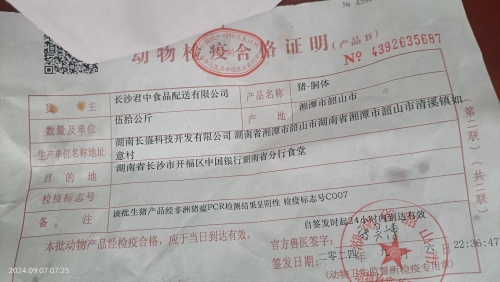 动物检疫合格证明(产品B)
№ 4392635687
货主 长沙君中食品配送有限公司 产品名称 猪-胴体
数量及单位 伍拾公斤 产地 湘潭市韶山市
生产单位名称地址 湖南长盛科技开发有限公司 湖南省湘潭市韶山市湖南省湘潭市韶山市清溪镇如
意村
目的地 湖南省长沙市开福区中国银行湖南省分行食堂
检疫标志号
备注 该批生猪产品经非洲猪瘟PCR检测结果呈阴性 检疫标志号C007
自签发时起24小时内到达有效
本批动物产品经检疫合格，应于当日到达有效。
官方兽医签字：
签发日期：二零二四 九 六 22:36:47
(动物卫生监督所检疫专用章)
第二联(共二联)
2024.09.07 07:25